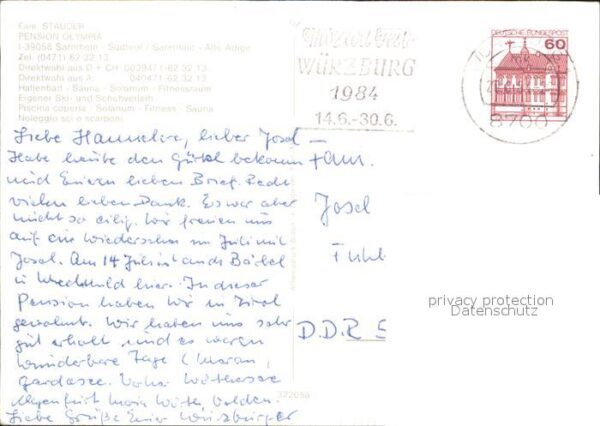 Fam. STAUDER
PENSION OLYMPIA
I-39058 Sarnthein - Südtirol / Sarentino - Alto Adige
Tel. (0471) 62 32 13
Direktwahl aus D + CH: 0039471-62 32 13
Direktwahl aus A: 040471-62 32 13
Hallenbad - Sauna - Solarium - Fitnessraum
Eigener Ski- und Schuhverleih
Piscina coperta - Solarium - Fitness - Sauna
Noleggio sci e scarponi
Mozartfest
WÜRZBURG
1984
14.6.-30.6.
DEUTSCHE BUNDESPOST
60
8700
Liebe Hannelore, lieber Josef –
Habe heute den Gürtel bekommen
und Euren lieben Brief. Recht
vielen lieben Dank. Es war aber
nicht so eilig. Wir freuen uns
auf ein Wiedersehen im Juli mit
Josef. Am 14 Juli ist auch Bärbel
in hier. In dieser
Pension haben wir in Tirol
gewohnt. Wir haben uns sehr
gut erholt und es waren
wunderbare Tage (Meran,
Gardasee. Vorher Wörthersee
Klagenfurt
Liebe Grüße Eure Würzburger
Fam.
Josef
D.D.R
privacy protection
Datenschutz